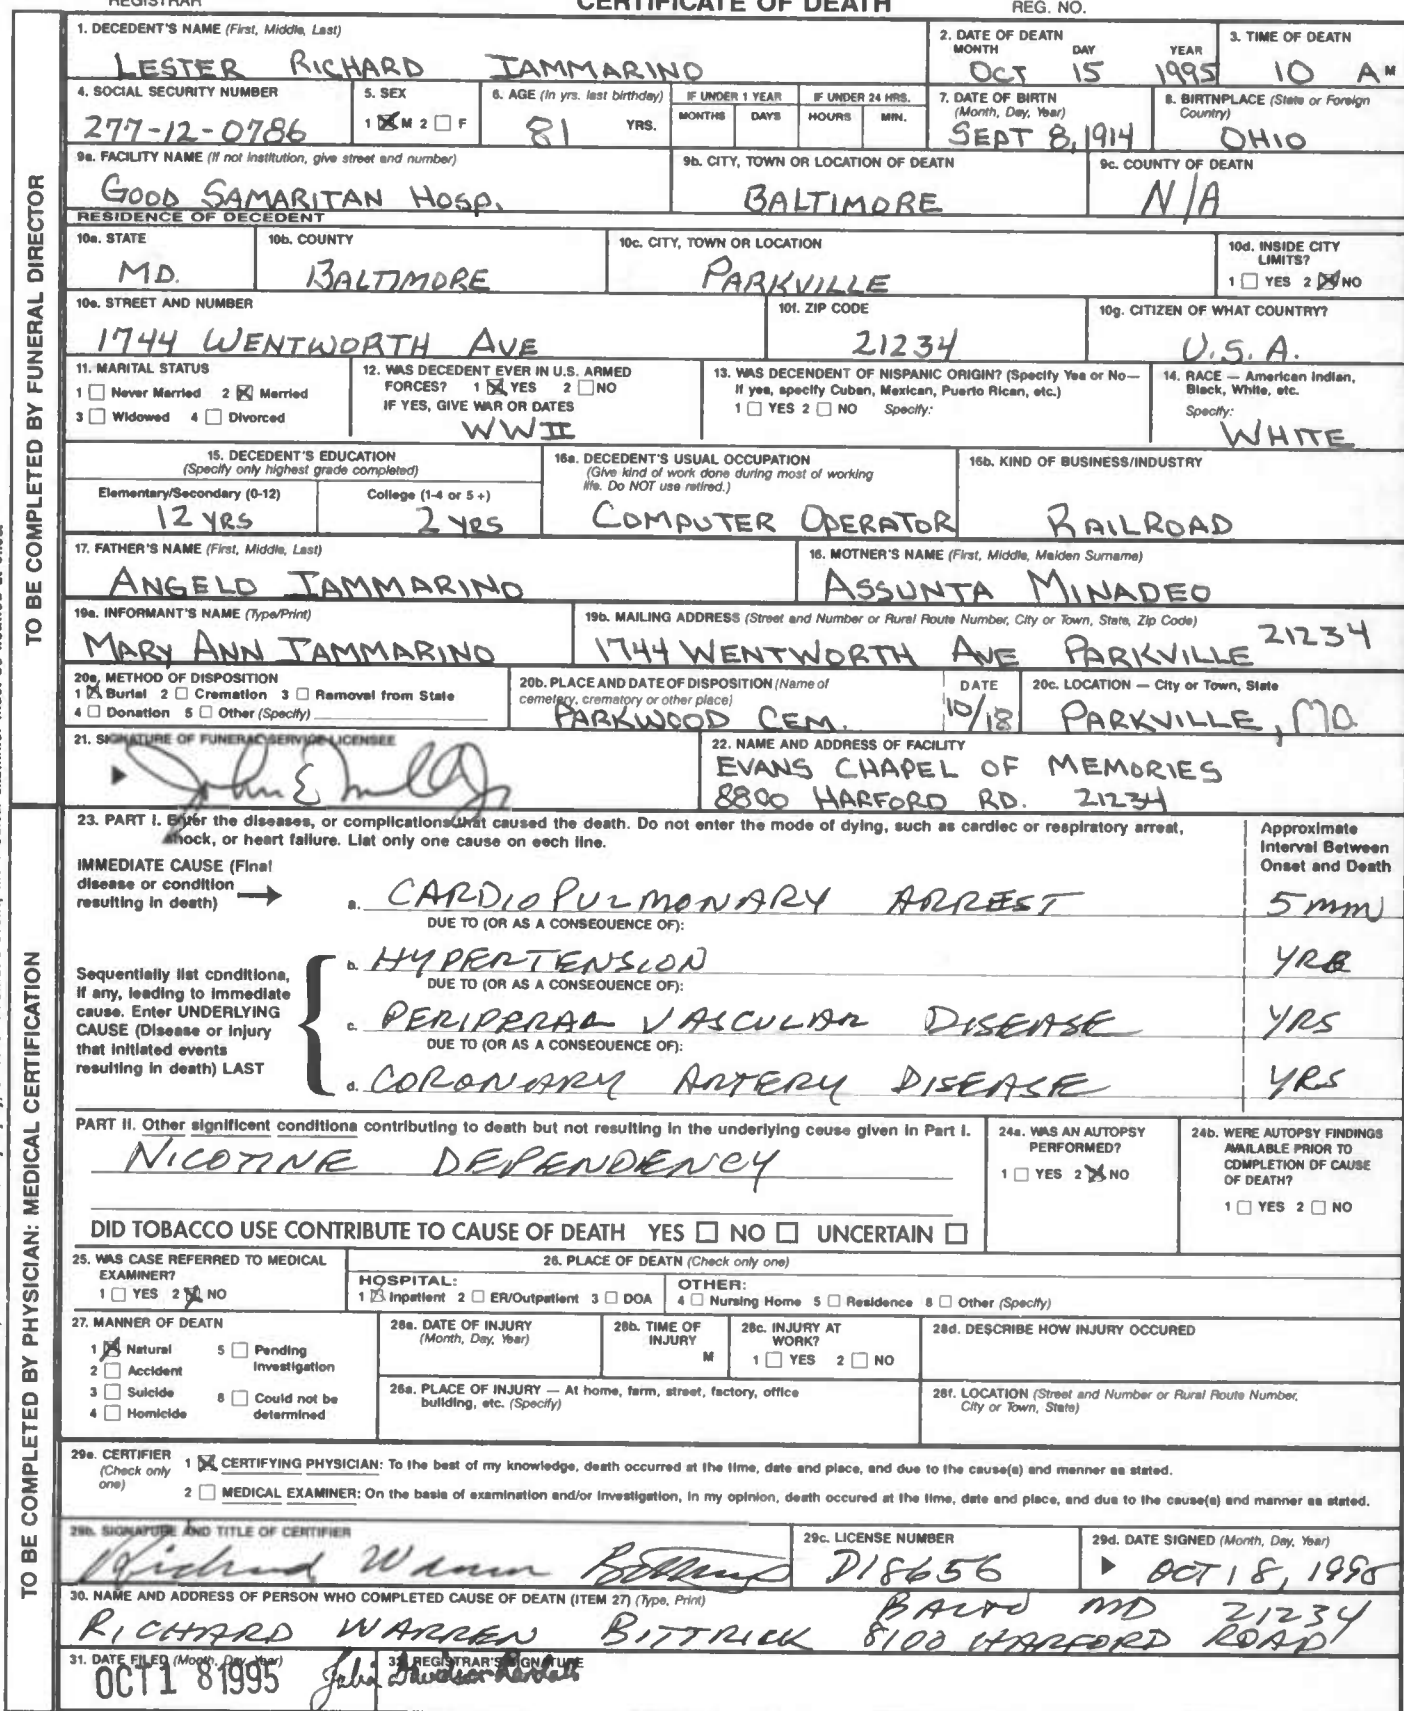 REGISTRAR CERTIFICATE OF DEATH REG. NO.
TO BE COMPLETED BY FUNERAL DIRECTOR
1. DECEDENT'S NAME (First, Middle, Last)
LESTER RICHARD IAMMARINO
2. DATE OF DEATH
MONTH DAY YEAR
OCT 15 1995
3. TIME OF DEATH
10 A M
4. SOCIAL SECURITY NUMBER
277-12-0786
5. SEX
1 ☒ M 2 ☐ F
6. AGE (In yrs. last birthday)
81 YRS.
IF UNDER 1 YEAR
MONTHS DAYS
IF UNDER 24 HRS.
HOURS MIN.
7. DATE OF BIRTN
(Month, Day, Year)
SEPT 8, 1914
8. BIRTNPLACE (State or Foreign
Country)
OHIO
9a. FACILITY NAME (If not institution, give street and number)
GOOD SAMARITAN HOSP.
9b. CITY, TOWN OR LOCATION OF DEATN
BALTIMORE
9c. COUNTY OF DEATN
N/A
RESIDENCE OF DECEDENT
10a. STATE
MD.
10b. COUNTY
BALTIMORE
10c. CITY, TOWN OR LOCATION
PARKVILLE
10d. INSIDE CITY
LIMITS?
1 ☐ YES 2 ☒ NO
10e. STREET AND NUMBER
1744 WENTWORTH AVE
10f. ZIP CODE
21234
10g. CITIZEN OF WHAT COUNTRY?
U.S.A.
11. MARITAL STATUS
1 ☐ Never Married 2 ☒ Married
3 ☐ Widowed 4 ☐ Divorced
12. WAS DECEDENT EVER IN U.S. ARMED
FORCES? 1 ☒ YES 2 ☐ NO
IF YES, GIVE WAR OR DATES
WWII
13. WAS DECENDENT OF NISPANIC ORIGIN? (Specify Yes or No—
If yes, specify Cuban, Mexican, Puerto Rican, etc.)
1 ☐ YES 2 ☐ NO Specify:
14. RACE — American Indian,
Black, White, etc.
Specify:
WHITE
15. DECEDENT'S EDUCATION
(Specify only highest grade completed)
Elementary/Secondary (0-12) College (1-4 or 5+)
12 YRS 2 YRS
16a. DECEDENT'S USUAL OCCUPATION
(Give kind of work done during most of working
life. Do NOT use retired.)
COMPUTER OPERATOR
16b. KIND OF BUSINESS/INDUSTRY
RAILROAD
17. FATHER'S NAME (First, Middle, Last)
ANGELO IAMMARINO
16. MOTNER'S NAME (First, Middle, Maiden Surname)
ASSUNTA MINADEO
19a. INFORMANT'S NAME (Type/Print)
MARY ANN IAMMARINO
19b. MAILING ADDRESS (Street and Number or Rural Route Number, City or Town, State, Zip Code)
1744 WENTWORTH AVE PARKVILLE 21234
20a. METHOD OF DISPOSITION
1 ☒ Burial 2 ☐ Cremation 3 ☐ Removal from State
4 ☐ Donation 5 ☐ Other (Specify)
20b. PLACE AND DATE OF DISPOSITION (Name of
cemetery, crematory or other place)
PARKWOOD CEM.
DATE
10/18
20c. LOCATION — City or Town, State
PARKVILLE, MD.
21. SIGNATURE OF FUNERAL SERVICE LICENSEE
John E
22. NAME AND ADDRESS OF FACILITY
EVANS CHAPEL OF MEMORIES
8800 HARFORD RD. 21234
TO BE COMPLETED BY PHYSICIAN: MEDICAL CERTIFICATION
23. PART I. Enter the diseases, or complications that caused the death. Do not enter the mode of dying, such as cardiec or respiratory arreat,
shock, or heart failure. Liat only one cause on eech line.
Approximate
Interval Between
Onset and Death
IMMEDIATE CAUSE (Final
disease or condition
resulting in death)
a. CARDIO PULMONARY ARREST 5 min
DUE TO (OR AS A CONSEOUENCE OF):
Sequentially list conditiona,
if any, leading to immediate
cause. Enter UNDERLYING
CAUSE (Disease or injury
that initiated events
resulting in death) LAST
b. HYPERTENSION YRS
DUE TO (OR AS A CONSEOUENCE OF):
c. PERIPERAL VASCULAR DISEASE YRS
DUE TO (OR AS A CONSEOUENCE OF):
d. CORONARY ARTERY DISEASE YRS
PART II. Other significent conditiona contributing to death but not resulting in the underlying ceuse given in Part I.
NICOTINE DEPENDENCY
24a. WAS AN AUTOPSY
PERFORMED?
1 ☐ YES 2 ☒ NO
24b. WERE AUTOPSY FINDINGS
AVAILABLE PRIOR TO
COMPLETION OF CAUSE
OF DEATH?
1 ☐ YES 2 ☐ NO
DID TOBACCO USE CONTRIBUTE TO CAUSE OF DEATH YES ☐ NO ☐ UNCERTAIN ☐
25. WAS CASE REFERRED TO MEDICAL
EXAMINER?
1 ☐ YES 2 ☒ NO
26. PLACE OF DEATN (Check only one)
HOSPITAL:
1 ☒ Inpatient 2 ☐ ER/Outpatient 3 ☐ DOA
OTHER:
4 ☐ Nursing Home 5 ☐ Residence 8 ☐ Other (Specify)
27. MANNER OF DEATH
1 ☒ Natural 5 ☐ Pending
Investigation
2 ☐ Accident
3 ☐ Suicide 8 ☐ Could not be
determined
4 ☐ Homicide
28a. DATE OF INJURY
(Month, Day, Year)
28b. TIME OF
INJURY
M
28c. INJURY AT
WORK?
1 ☐ YES 2 ☐ NO
28d. DESCRIBE HOW INJURY OCCURED
26a. PLACE OF INJURY — At home, farm, street, factory, office
building, etc. (Specify)
28f. LOCATION (Street and Number or Rural Route Number,
City or Town, State)
29a. CERTIFIER
(Check only
one)
1 ☒ CERTIFYING PHYSICIAN: To the best of my knowledge, death occurred at the time, date and place, and due to the cause(a) and menner as stated.
2 ☐ MEDICAL EXAMINER: On the basis of examination and/or investigation, in my opinion, death occured at the time, date and place, and due to the cause(a) and manner as stated.
29b. SIGNATURE AND TITLE OF CERTIFIER
Richard Warren Bittrick
29c. LICENSE NUMBER
D18656
29d. DATE SIGNED (Month, Day, Year)
OCT 18, 1995
30. NAME AND ADDRESS OF PERSON WHO COMPLETED CAUSE OF DEATN (ITEM 27) (Type, Print)
BALTO MD 21234
RICHARD WARREN BITTRICK 8100 HARFORD ROAD
31. DATE FILED (Month, Day, Year)
OCT 18 1995
32. REGISTRAR'S SIGNATURE
Julia Davidson-Randall